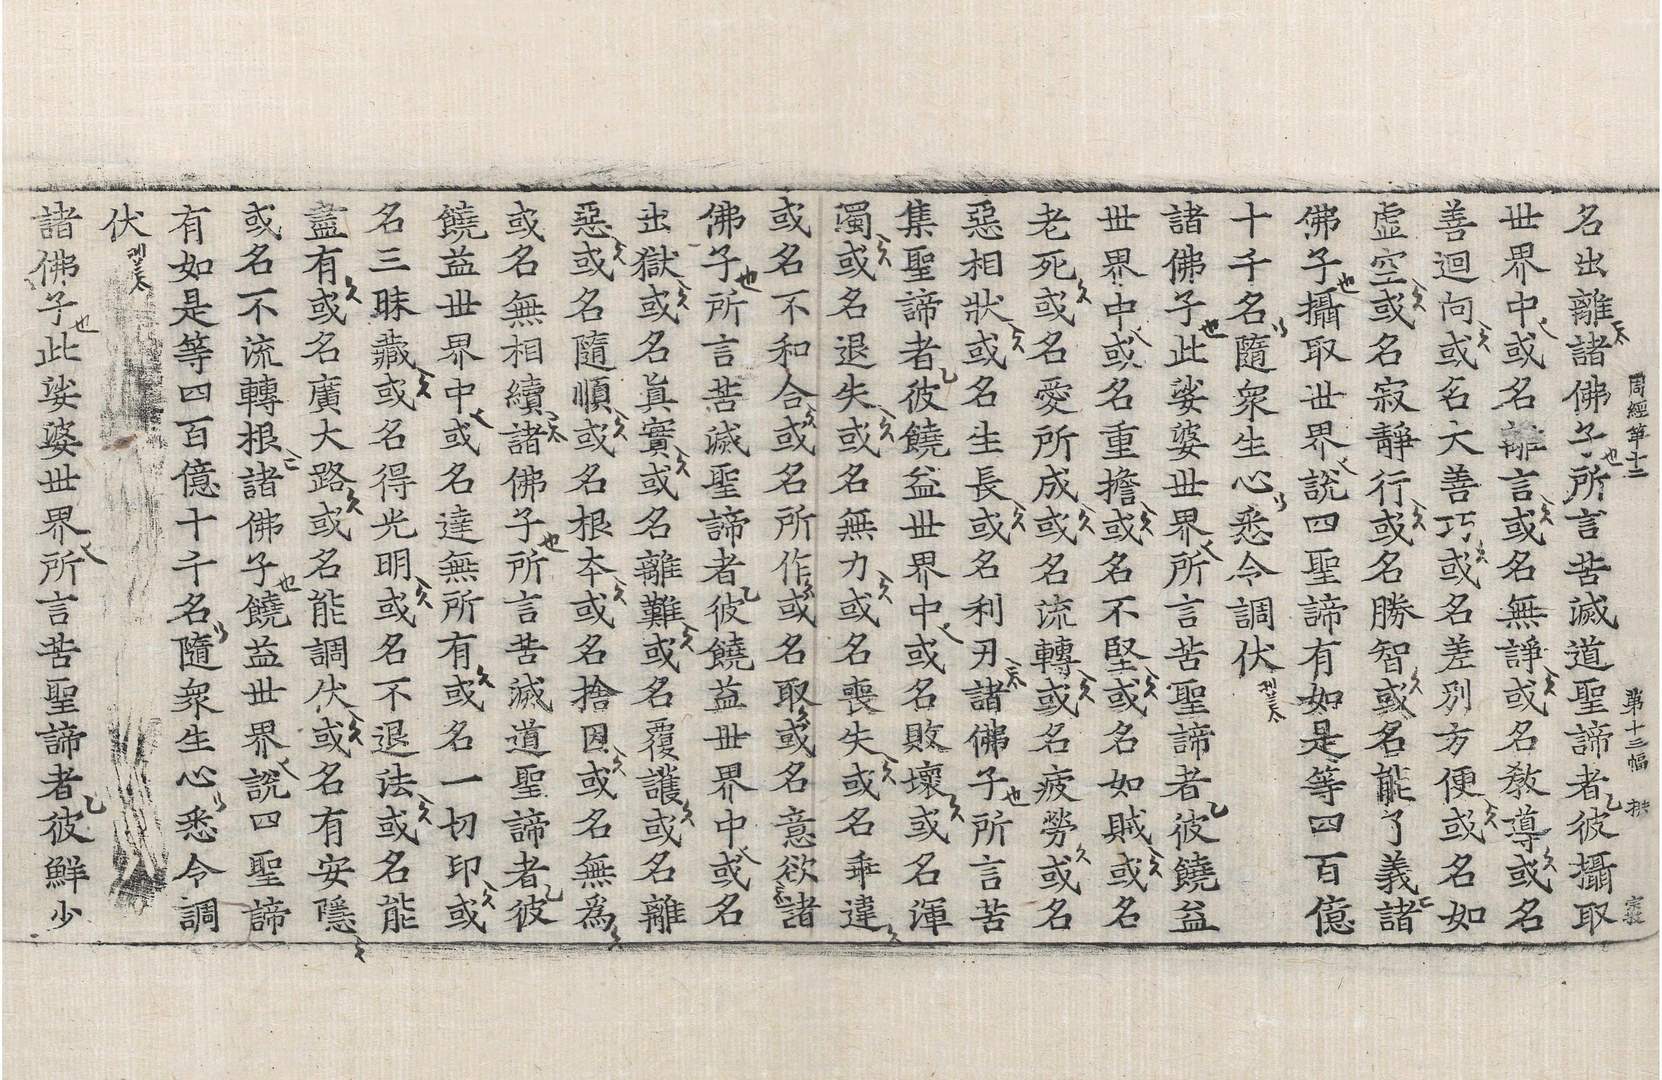 周經第十二 第十三幅
名出離諸佛子所言苦滅道聖諦者彼攝取
世界中或名離言或名無諍或名敎導或名
善迴向或名大善巧或名差別方便或名如
虛空或名寂靜行或名勝智或名能了義諸
佛子攝取世界說四聖諦有如是等四百億
十千名隨衆生心悉令調伏
諸佛子此娑婆世界所言苦聖諦者彼饒益
世界中或名重擔或名不堅或名如賊或名
老死或名愛所成或名流轉或名疲勞或名
惡相狀或名生長或名利刃諸佛子所言苦
集聖諦者彼饒益世界中或名敗壞或名渾
濁或名退失或名無力或名喪失或名乖違
或名不和合或名所作或名取或名意欲諸
佛子所言苦滅聖諦者彼饒益世界中或名
出獄或名眞實或名離難或名覆護或名離
惡或名隨順或名根本或名捨因或名無爲
或名無相續諸佛子所言苦滅道聖諦者彼
饒益世界中或名達無所有或名一切印或
名三昧藏或名得光明或名不退法或名能
盡有或名廣大路或名能調伏或名有安隱
或名不流轉根諸佛子饒益世界說四聖諦
有如是等四百億十千名隨衆生心悉令調
伏
諸佛子此娑婆世界所言苦聖諦者彼鮮少